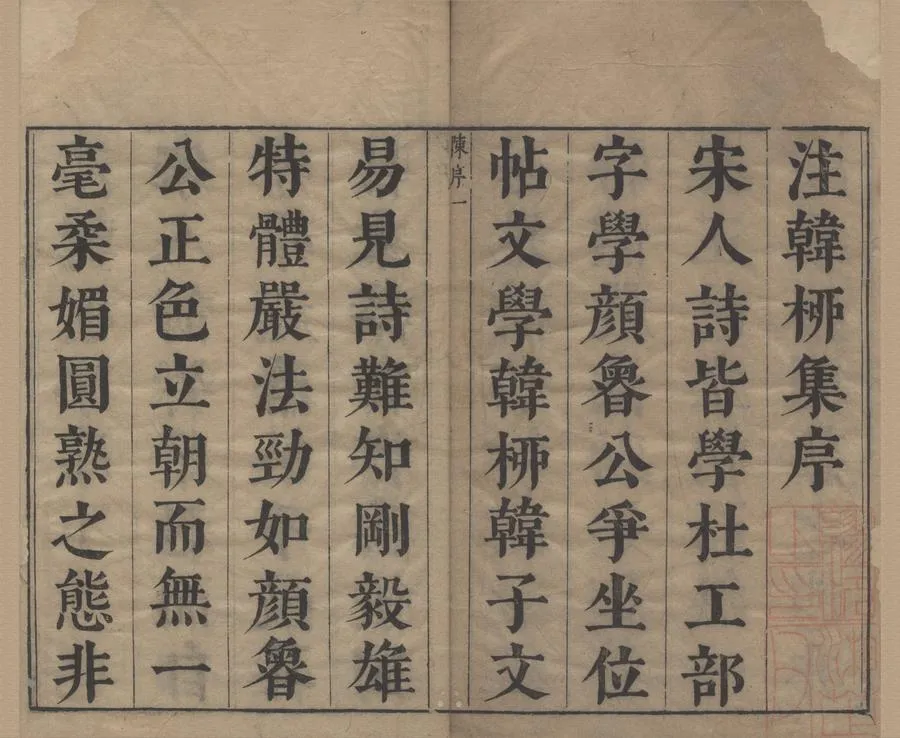 注韓栁集序
宋人詩皆學杜工部
字學顔魯公爭坐位
帖文學韓栁韓子文
陳序一
易見詩難知剛毅雄
特體嚴法勁如顔魯
公正色立朝而無一
毫柔媚圓熟之態非